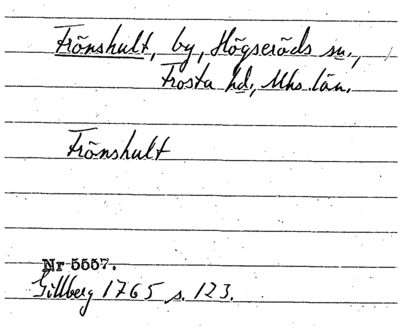 Frönshult, by, Högseröds sn.,
Frosta hd., Mhs. län.
Frönshult
Nr 5557.
Gillberg 1765 s. 123.